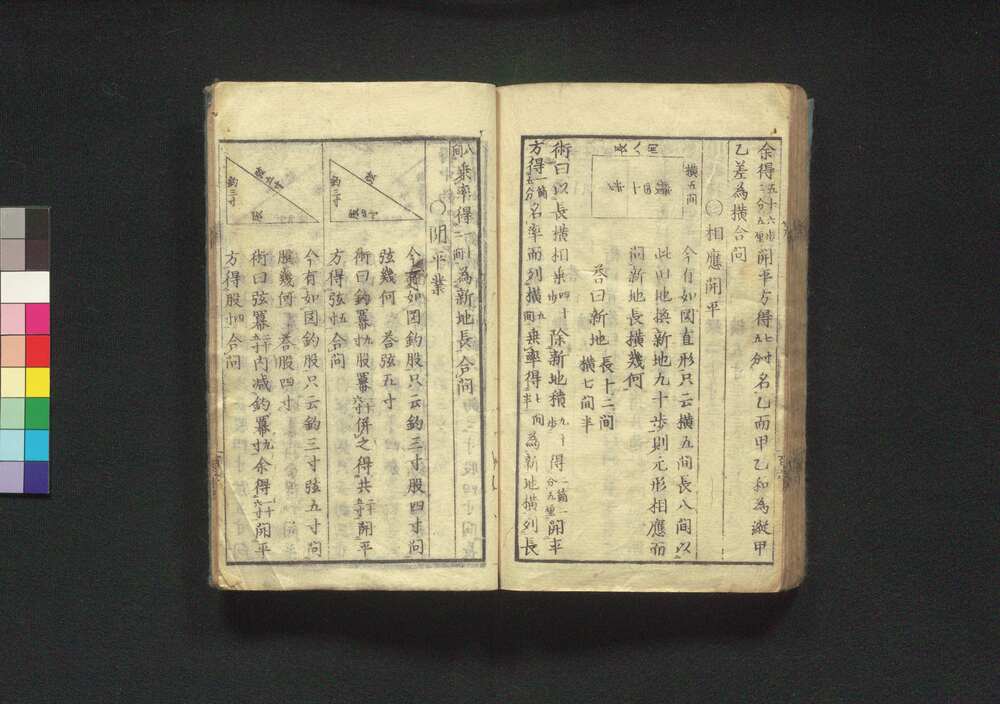 余得五十六歩二分五厘開平方得七寸五分名乙而甲乙和為縦甲
乙差為横合問
○相應開平
長八間
横五間
積四十歩
今有如図直形只云横五間長八間以
此田地換新地九十歩則元形相應而
問新地長横幾何
答曰新地 長十二間
横七間半
術曰以長横相乗四十歩除新地積九十歩得
開平
方得一箇五分名率而列横五間乗率得七間半為新地横列長
八間乗率得一十二間為新地長合問
○開平業
鈎三寸
股四寸
弦
今有如図鈎股只云鈎三寸股四寸問
弦幾何 答弦五寸
術曰鈎冪九寸股冪一十六寸併之得共二十五寸開平
方得弦五寸合問
鈎三寸
弦五寸
股
今有如図鈎股只云鈎三寸弦五寸問
股幾何 答股四寸
術曰弦冪二十五寸内減鈎冪九寸余得一十六寸開平
方得股四寸合問